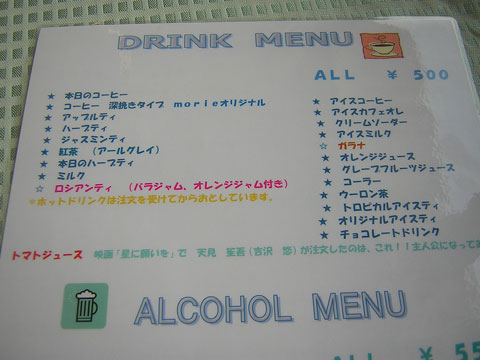 DRINK MENU
ALL ￥500
★ 本日のコーヒー
★ コーヒー 深挽きタイプ morieオリジナル
★ アップルティ
★ ハーブティ
★ ジャスミンティ
★ 紅茶 （アールグレイ）
★ 本日のハーブティ
★ ミルク
☆ ロシアンティ （バラジャム、オレンジジャム付き）
＊ホットドリンクは注文を受けてからおとしています。
★ アイスコーヒー
★ アイスカフェオレ
★ クリームソーダー
★ アイスミルク
☆ ガラナ
★ オレンジジュース
★ グレープフルーツジュース
★ コーラー
★ ウーロン茶
★ トロピカルアイスティ
★ オリジナルアイスティ
★ チョコレートドリンク
トマトジュース 映画「星に願いを」で 天見 笙吾（吉沢 悠）が注文したのは、これ！！主人公になってみ
ALCOHOL MENU
ALL ￥55